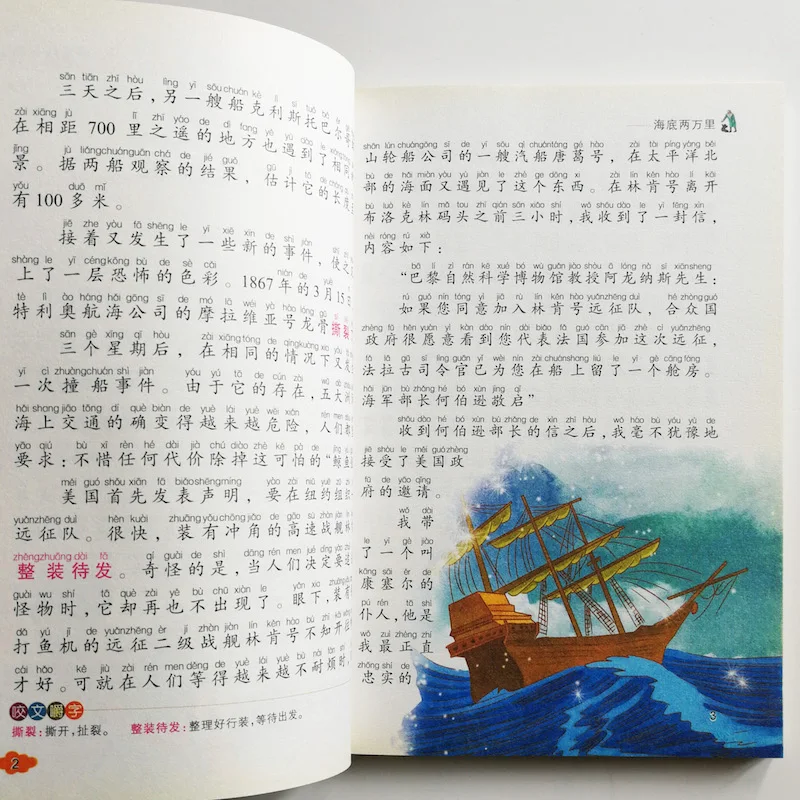 sān tiān zhī hòu lìng yī sōu chuán kè lì sī tuō bā
三天之后,另一艘船克利斯托巴尔
zài xiāng jù lǐ zhī yáo de dì fang yě yù dào le xiāng
在相距700里之遥的地方也遇到了相同
jǐng jù liǎng chuán guān chá de jié guǒ gū jì tā de cháng
景。据两船观察的结果,估计它的长度
yǒu duō mǐ
有100多米。
jiē zhe yòu fā shēng le yī xiē xīn de shì jiàn shǐ
接着又发生了一些新的事件,使之
shàng le yī céng kǒng bù de sè cǎi nián de yuè
上了一层恐怖的色彩。1867年的3月15
tè lì ào háng hǎi gōng sī de mó lā wéi yà hào lóng gǔ sī liè
特利奥航海公司的摩拉维亚号龙骨撕裂
sān gè xīng qī hòu zài xiāng tóng de qíng kuàng xià yòu fā
三个星期后,在相同的情况下又发
yī cì zhuàng chuán shì jiàn yóu yú tā de cún zài wǔ dà
一次撞船事件。由于它的存在,五大洲
hǎi shang jiāo tōng dí què biàn de yuè lái yuè wēi xiǎn rén men
海上交通的确变得越来越危险,人们都
yāo qiú bù xī rèn hé dài jià chú diào zhè kě pà de
要求:不惜任何代价除掉这可怕的“鲸鱼
měi guó shǒu xiān fā biǎo shēng míng yào zài niǔ yuē zǔ zhī
美国首先发表声明,要在纽约组织
yuǎn zhēng duì hěn kuài zhuāng yǒu chōng jiǎo de gāo sù zhàn jiàn lín
远征队。很快,装有冲角的高速战舰林
zhěng zhuāng dài fā qí guài de shì dāng rén men jué dìng yào
整装待发。奇怪的是,当人们决定要
guài wu shí tā què zài yě bù chū xiàn le yǎn xià zhuāng
怪物时,它却再也不出现了。眼下,装有
dǎ yú jī de yuǎn zhēng èr jí zhàn jiàn lín kěn hào bù zhī kāi
打鱼机的远征二级战舰林肯号不知开
cái hǎo kě jiù zài rén men děng de yuè lái yuè bù nài fán shí
才好。可就在人们等得越来越不耐烦时,
咬文嚼字
撕裂:撕开,扯裂。 整装待发:整理好行装,等待出发。
2
海底两万里
shān lún chuán gōng sī de yī sōu qì chuán táng gě hào zài tài píng yáng běi
山轮船公司的一艘汽船唐葛号,在太平洋北
bù de hǎi miàn yòu yù jiàn le zhè ge dōng xi zài lín kěn hào lí kāi
部的海面又遇见了这个东西。在林肯号离开
bù luò kè lín mǎ tóu zhī qián sān xiǎo shí wǒ shōu dào le yī fēng xìn
布洛克林码头之前三小时,我收到了一封信,
nèi róng rú xià
内容如下:
bā lí zì rán kē xué bó wù guǎn jiào shòu ā lóng nà sī xiān sheng
“巴黎自然科学博物馆教授阿龙纳斯先生:
rú guǒ nín tóng yì jiā rù lín kěn hào yuǎn zhēng duì hé zhòng guó
如果您同意加入林肯号远征队,合众国
zhèng fǔ hěn yuàn yì kàn dào nín dài biǎo fǎ guó cān jiā zhè cì yuǎn zhēng
政府很愿意看到您代表法国参加这次远征,
fǎ lā gǔ sī lìng guān yǐ wèi nín zài chuán shang liú le yī gè cāng fáng
法拉古司令官已为您在船上留了一个舱房。
hǎi jūn bù zhǎng hé bó xùn jìng qǐ
海军部长何伯逊敬启”
shōu dào hé bó xùn bù zhǎng de xìn zhī hòu wǒ háo bù yóu yù de
收到何伯逊部长的信之后,我毫不犹豫地
jiē shòu le měi guó zhèng
接受了美国政
fǔ de yāo qǐng
府的邀请。
wǒ dài
我带
le yī gè jiào
了一个叫
kāng sài ěr de
康塞尔的
pú rén tā shì
仆人,他是
wǒ zuì zhèng zhí
我最正直
zhōng shí de
忠实的
3